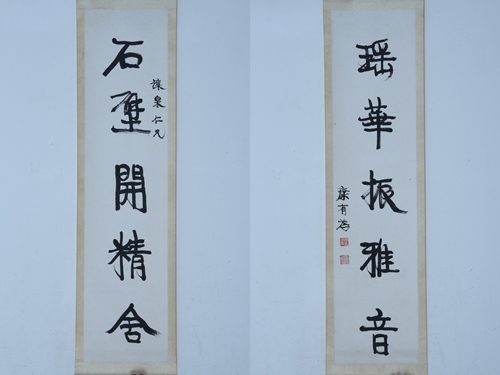 石壁開精舍
讓泉仁兄
瑶華振雅音
康有為